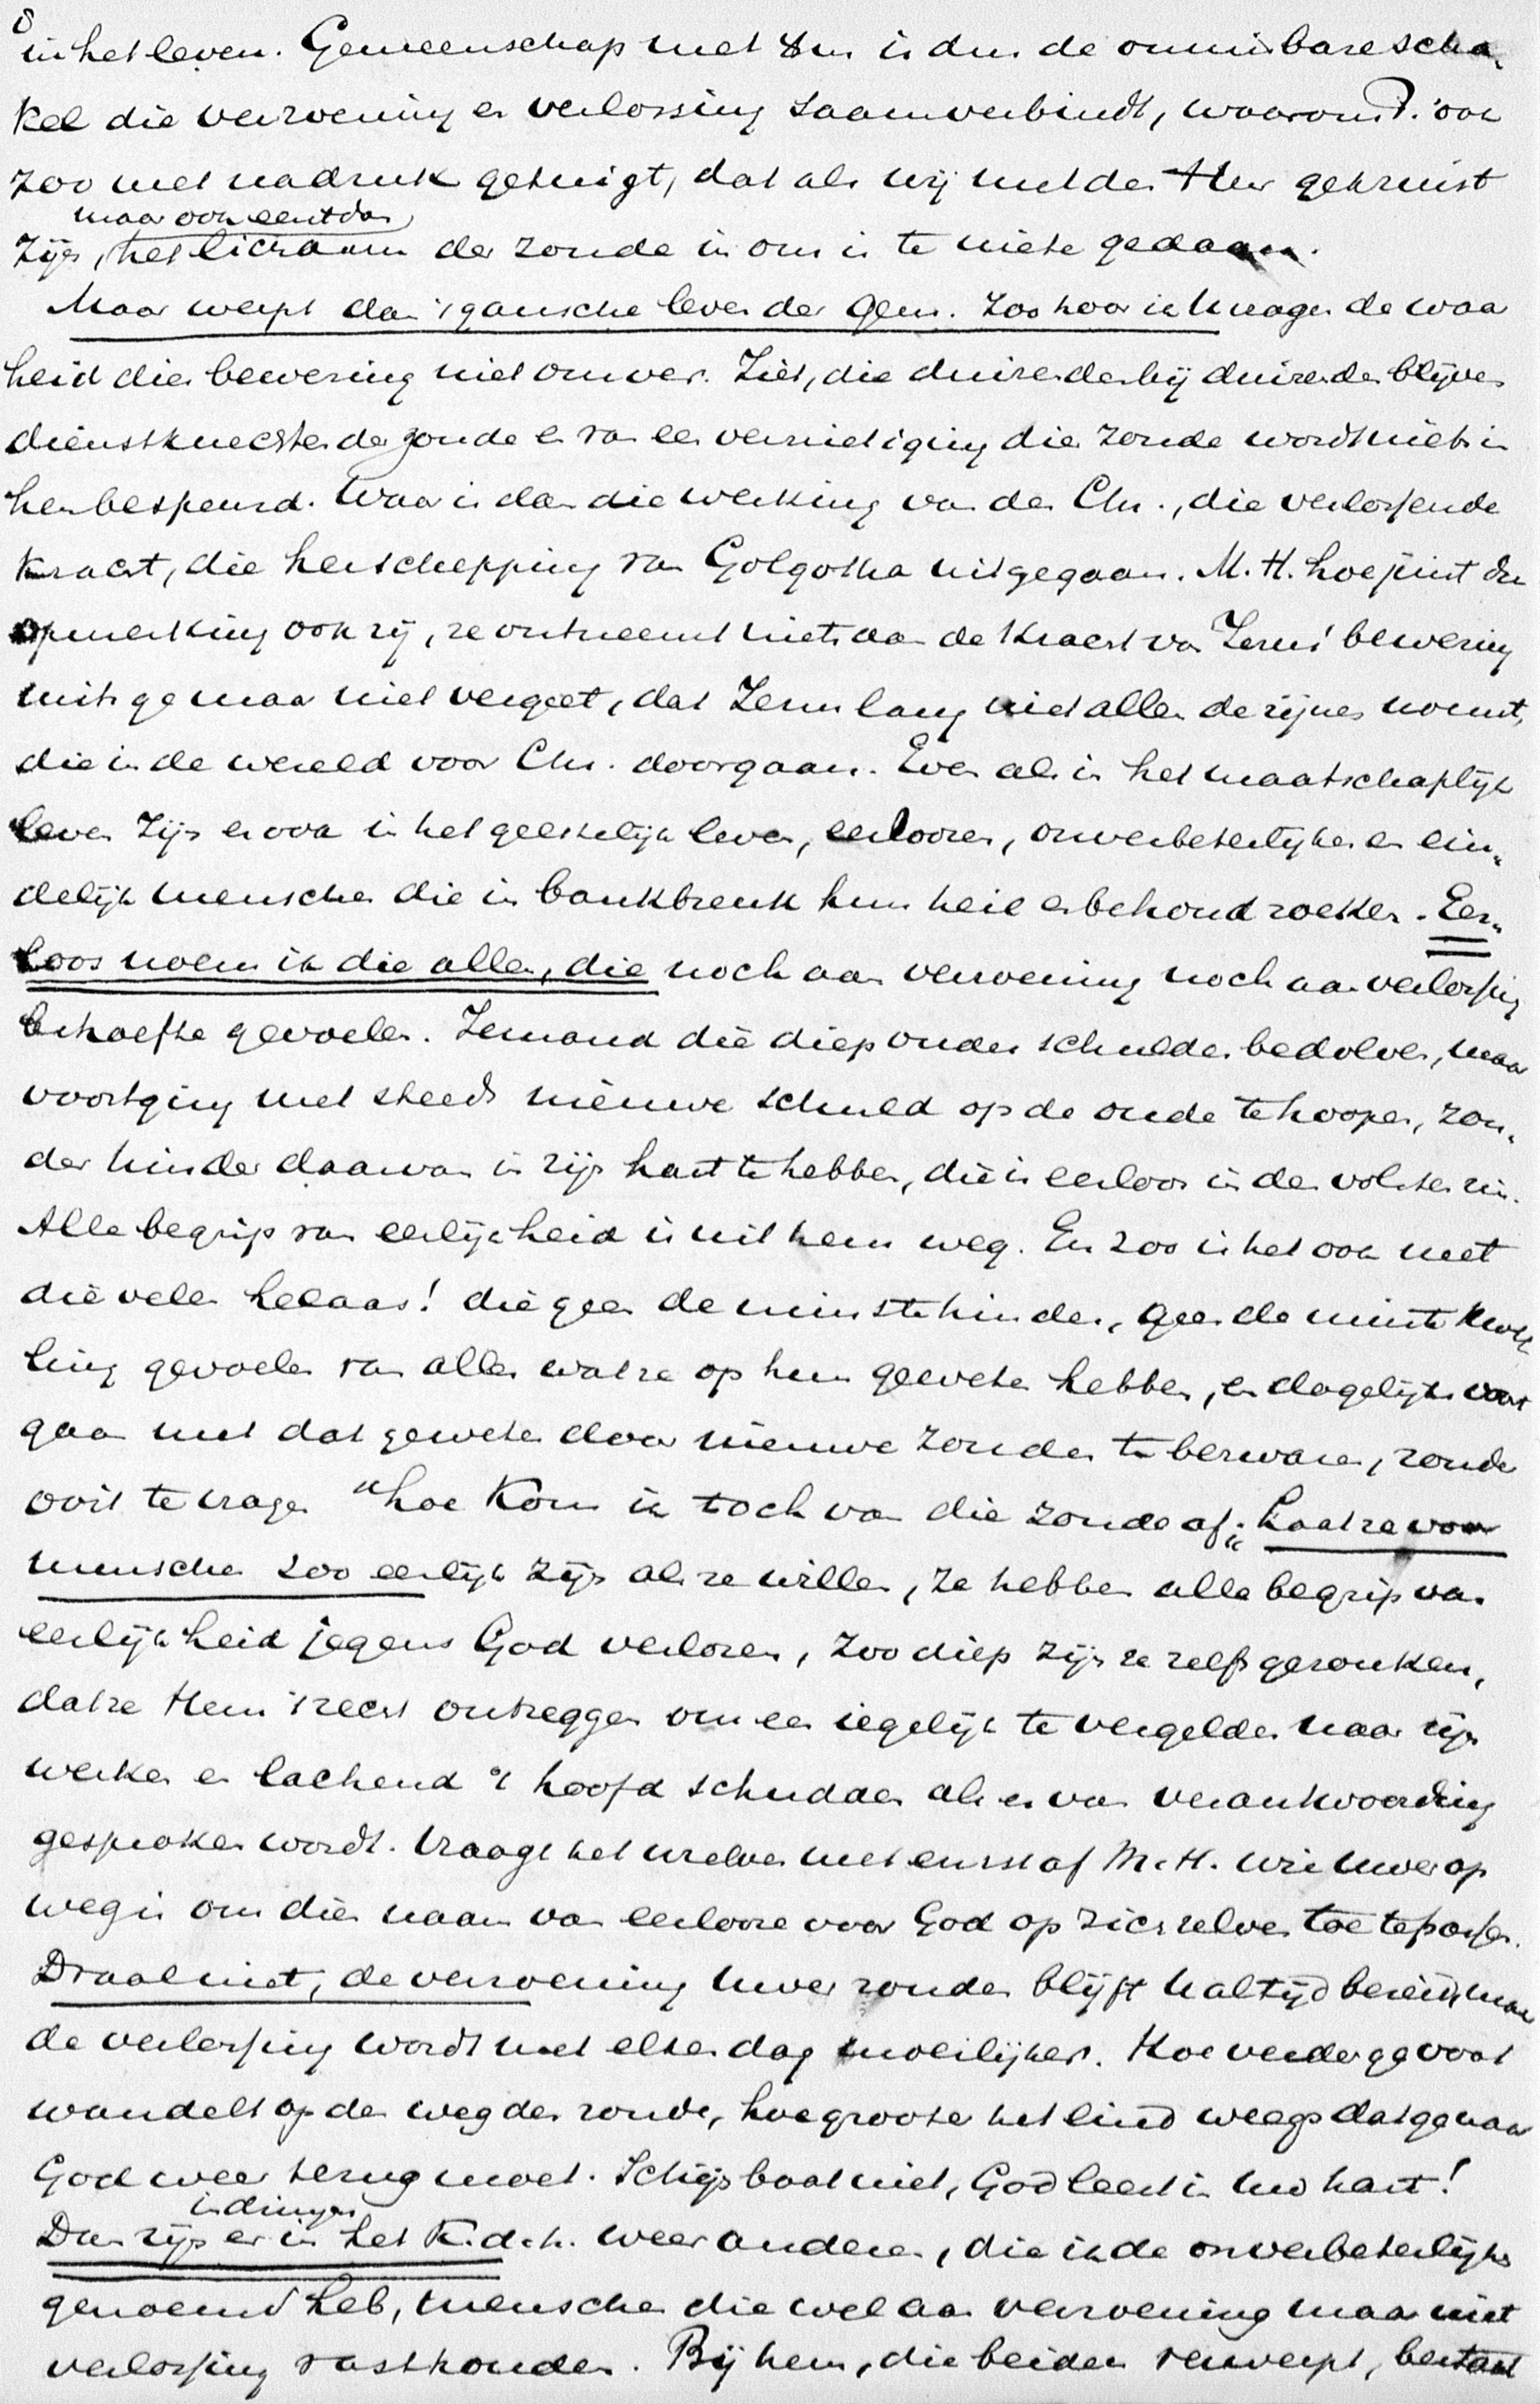 8
in het leven. Gemeenschap met Hem is dus de onmisbare scha-
kel die verzoening en verlossing saamverbindt, waarom P. ook
zoo met nadruk getuigt, dat als wij met den Heer gekruist
maar ook eerst dan
zijn, het lichaam der zonde in ons is te niete gedaan.
Maar werpt dan 't gansche leven der Gem. zoo hoor ik U vragen de waar
heid dier bewering niet omver. Ziet, die duizenden bij duizenden blijven
dienstknechten der zonde en van een vernietiging dier zonde wordt niets in
hen bespeurd. Waar is dan die werking van den Chr., die verlossende
kracht, die herschepping van Golgotha uitgegaan. M. H. hoe juist die
opmerking ook zij, ze ontneemt niets aan de kracht van Jezus' bewering
mits ge maar niet vergeet, dat Jezus lang niet allen de zijnen noemt,
die in de wereld voor Chr. doorgaan. Even als in het maatschaplijk
leven zijn er ook in het geestelijk leven, eerloozen, onverbeterlijken en ein-
delijk menschen die in bankbreuk hun heil en behoud zoeken. Eer-
loos noem ik die allen, die noch aan verzoening noch aan verlossing
behoefte gevoelen. Iemand die diep onder schulden bedolven, maar
voortging met steeds nieuwe schuld op de oude te hoopen, zon-
der hinder daarvan in zijn hart te hebben, die is eerloos in den volsten zin.
Alle begrip van eerlijkheid is uit hem weg. En zoo is het ook met
die velen helaas! die geen de minste hinder, geen de minste kwel
ling gevoelen van alles wat ze op hun geweten hebben, en dagelijks voort
gaan met dat geweten door nieuwe zonden te bezwaren, zonder
ooit te vragen "hoe kom ik toch van die zonde af." Laat ze voor
menschen zoo eerlijk zijn als ze willen, ze hebben alle begrip van
eerlijkheid jegens God verloren, zoo diep zijn ze zelfs gezonken,
dat ze Hem 't recht ontzeggen om een iegelijk te vergelden naar zijn
werken en lachend 't hoofd schudden als er van verantwoording
gesproken wordt. Vraagt het uzelven met ernst af M. H. wie uwer op
weg is om dien naam van eerlooze voor God op zichzelven toe te passen.
Draal niet, de verzoening uwer zonden blijft U altijd bereid, maar
de verlossing wordt met elken dag moeilijker. Hoe verder ge voort
wandelt op den weg der zonde, hoe grooter het eind weegs dat ge naar
God weer terug moet. Schijn baat niet, God leest in uw hart!
indringen
Dan zijn er in het K. d. h. weer anderen, die ik de onverbeterlijke
genoemd heb, menschen die wel aan verzoening maar niet
verlossing vasthouden. Bij hem, die beiden verwerpt, bestaat